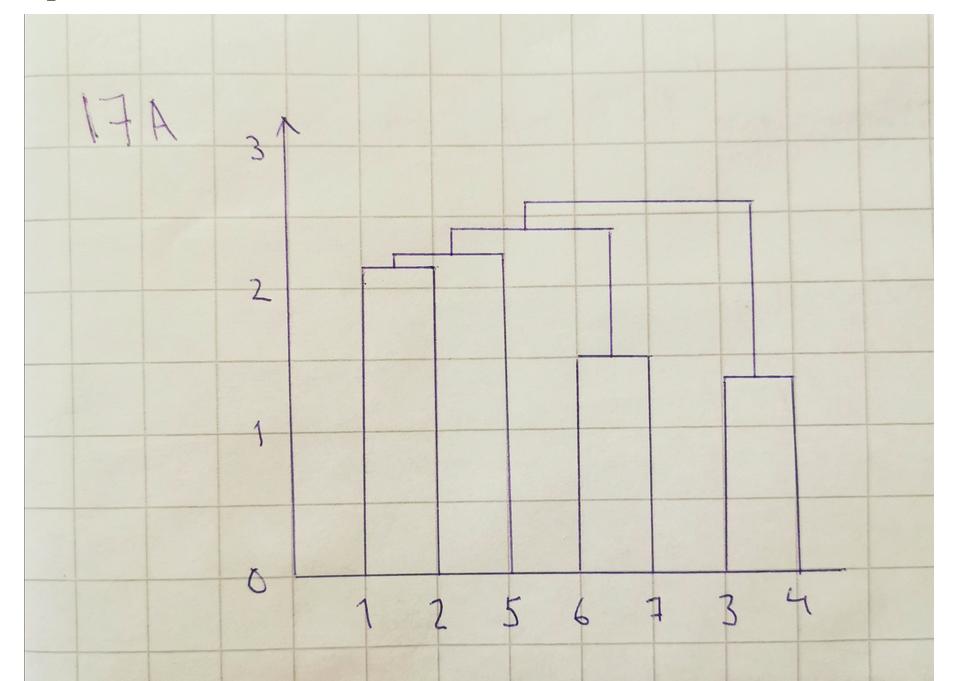 17A
3
2
1
0
1 2 5 6 7 3 4